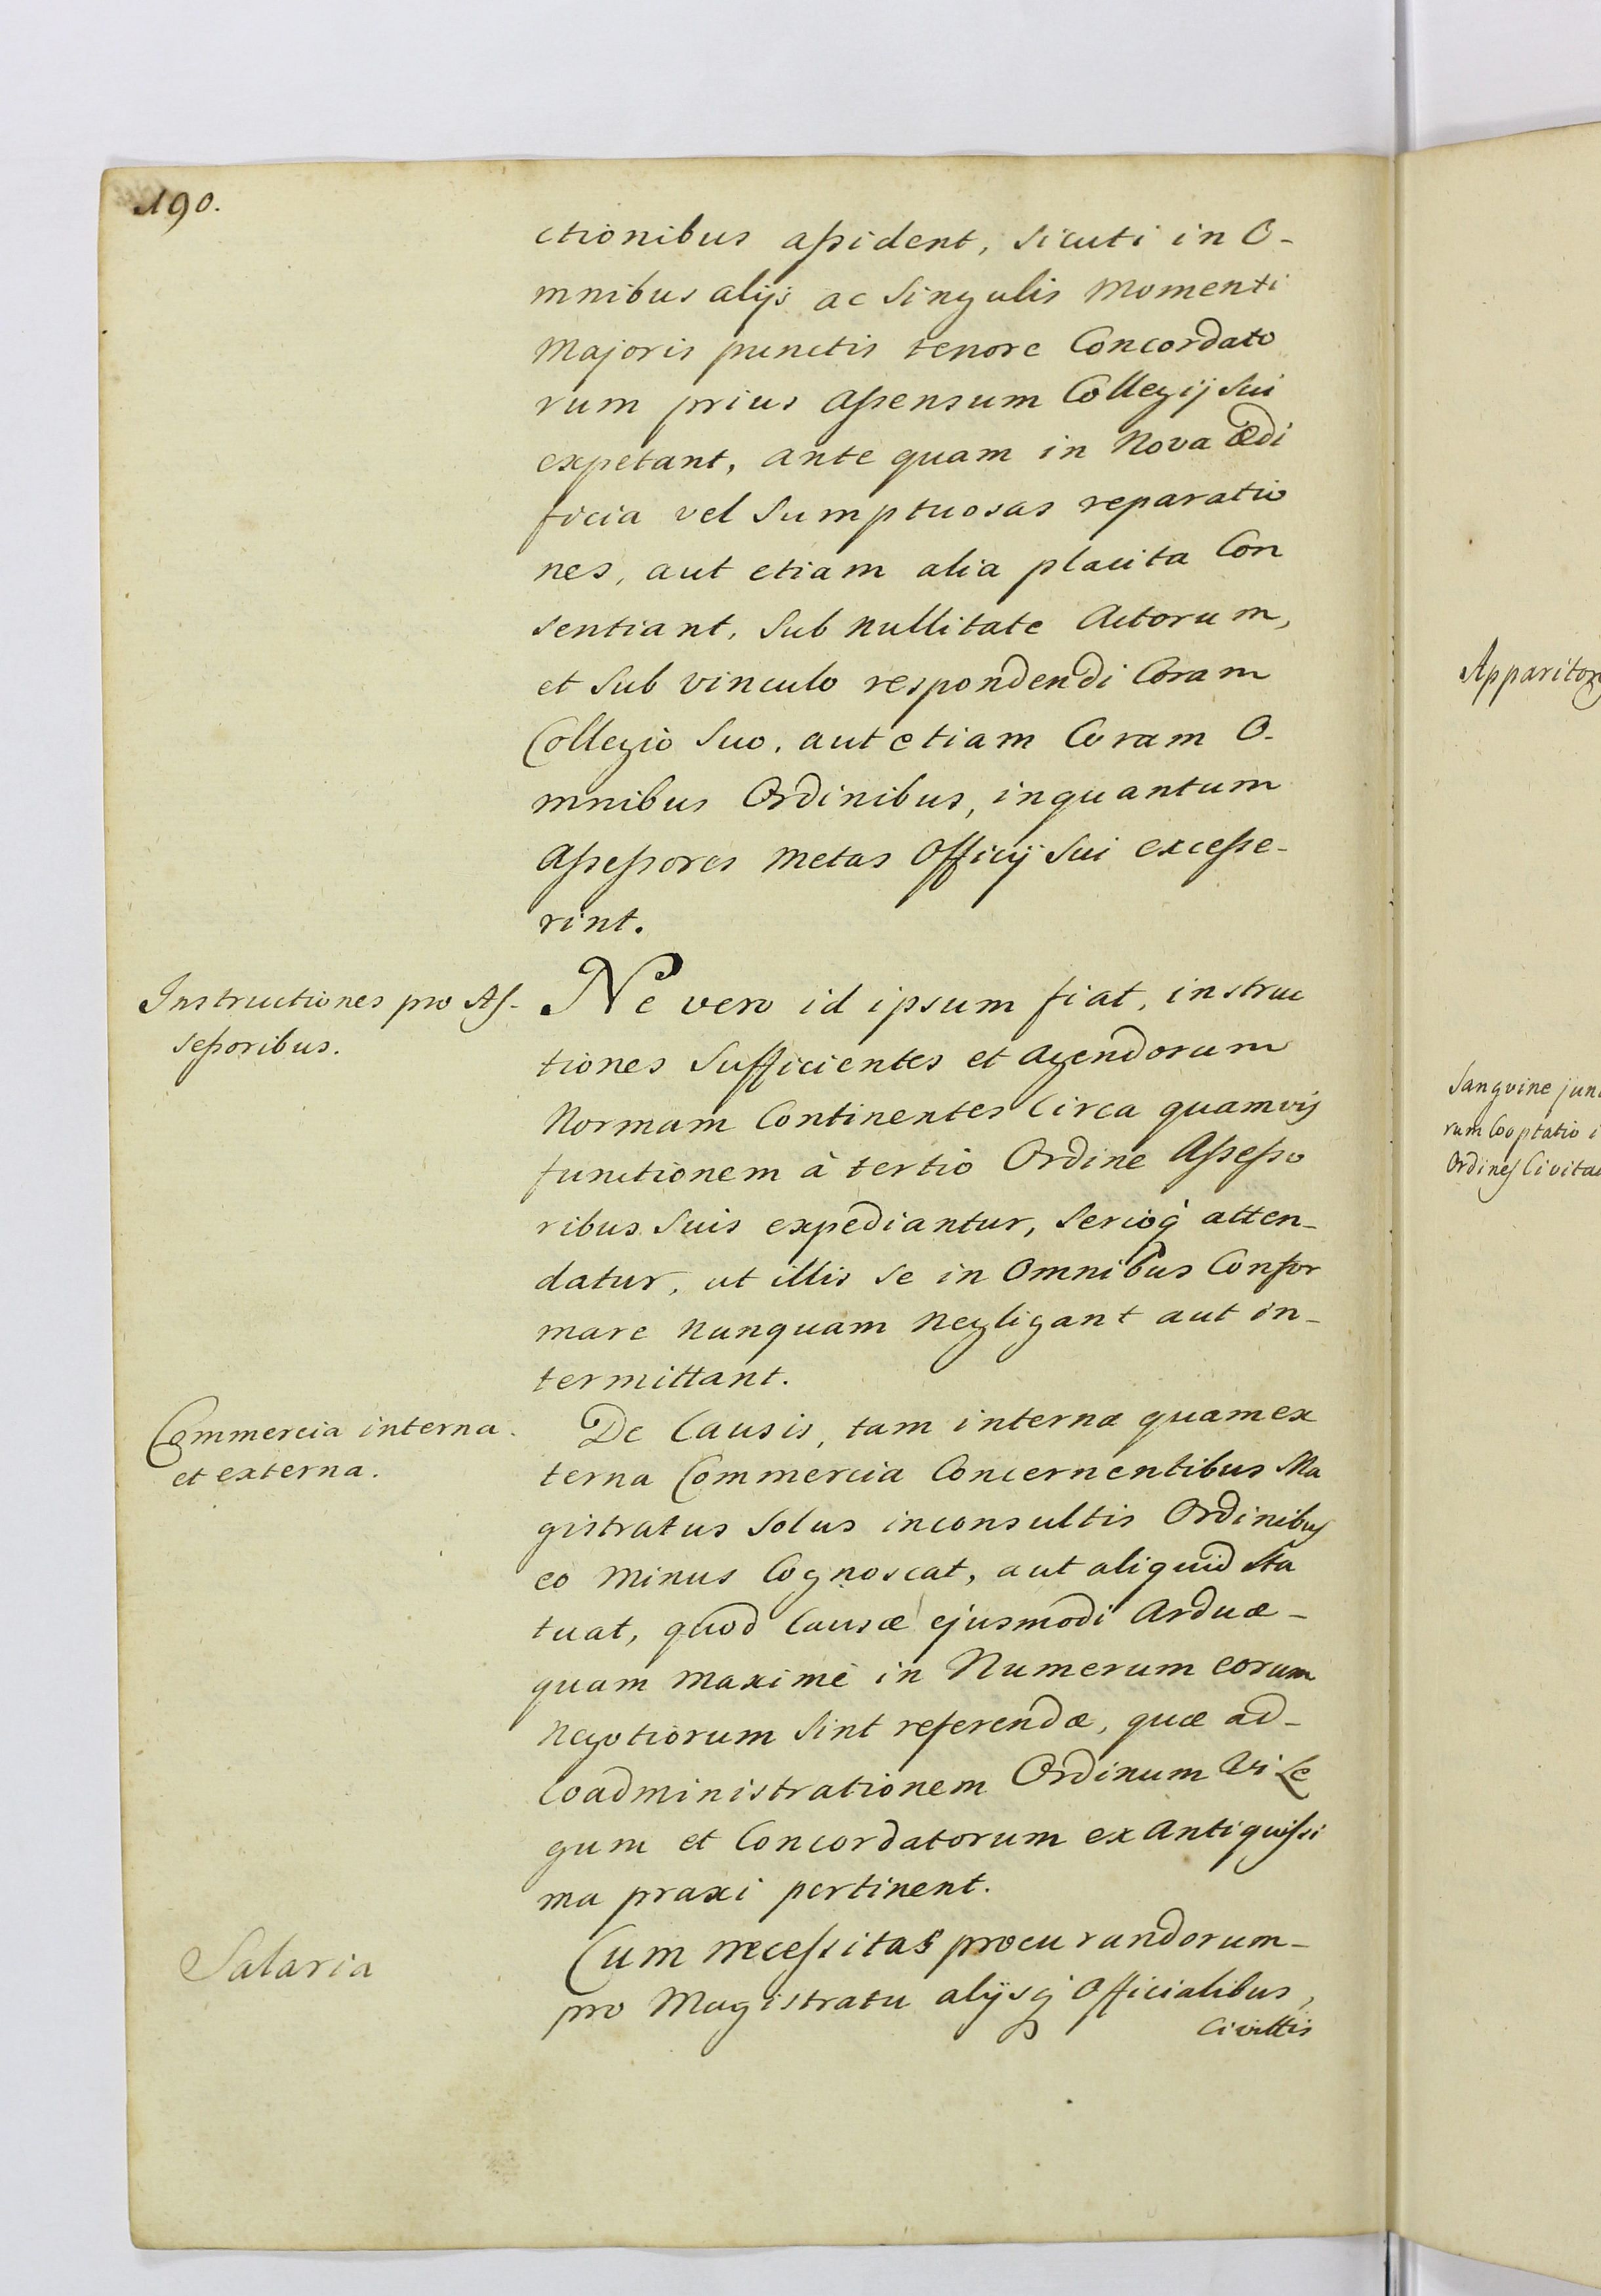 190.
ctionibus aſsident, sicuti in O-
mnibus alijs ac Singulis Momenti
Majoris punctis tenore Concordato
rum prius aſsensum Collegij Sui
expetant, ante quam in Nova ædi
ficia vel Sumptuosas reparatio
nes, aut etiam alia placita Con
sentiant, Sub nullitate Actorum,
et Sub vinculo respondendi Coram
Collegio Suo, aut etiam Coram O-
mnibus Ordinibus, inquantum
Aſseſsores Metas Officij Sui exceſse-
rint.
Instructiones pro Aſ-
seſsoribus.
Ne vero id ipsum fiat, instruc
tiones Sufficientes et agendorum
Normam Continentes Circa quamvis
functionem à tertio Ordine Aſseſso
ribus Suis expediantur, Serioq́ atten-
datur, ut illis Se in Omnibus Confor
mare nunquam negligant aut in-
termittant.
Commercia interna
et externa.
De Causis, tam interna quam ex
terna Commercia Concernentibus Ma
gistratus Solus inconsultis Ordinibus
eo Minus Cognoscat, aut aliquid Sta
tuat, quod Causæ ejusmodi Arduæ-
quam maximè in Numerum eorum
Negotiorum Sint referendæ, quæ ad-
Coadministrationem Ordinum Vi Le
gum et Concordatorum ex Antiquiſsi
ma praxi pertinent.
Salaria
Cum neceſsitas procurandorum-
pro Magistratu alijsq́ Officialibus,
Civittis
Apparitor
Sanguine junc
rum Cooptatio i
Ordines Civita